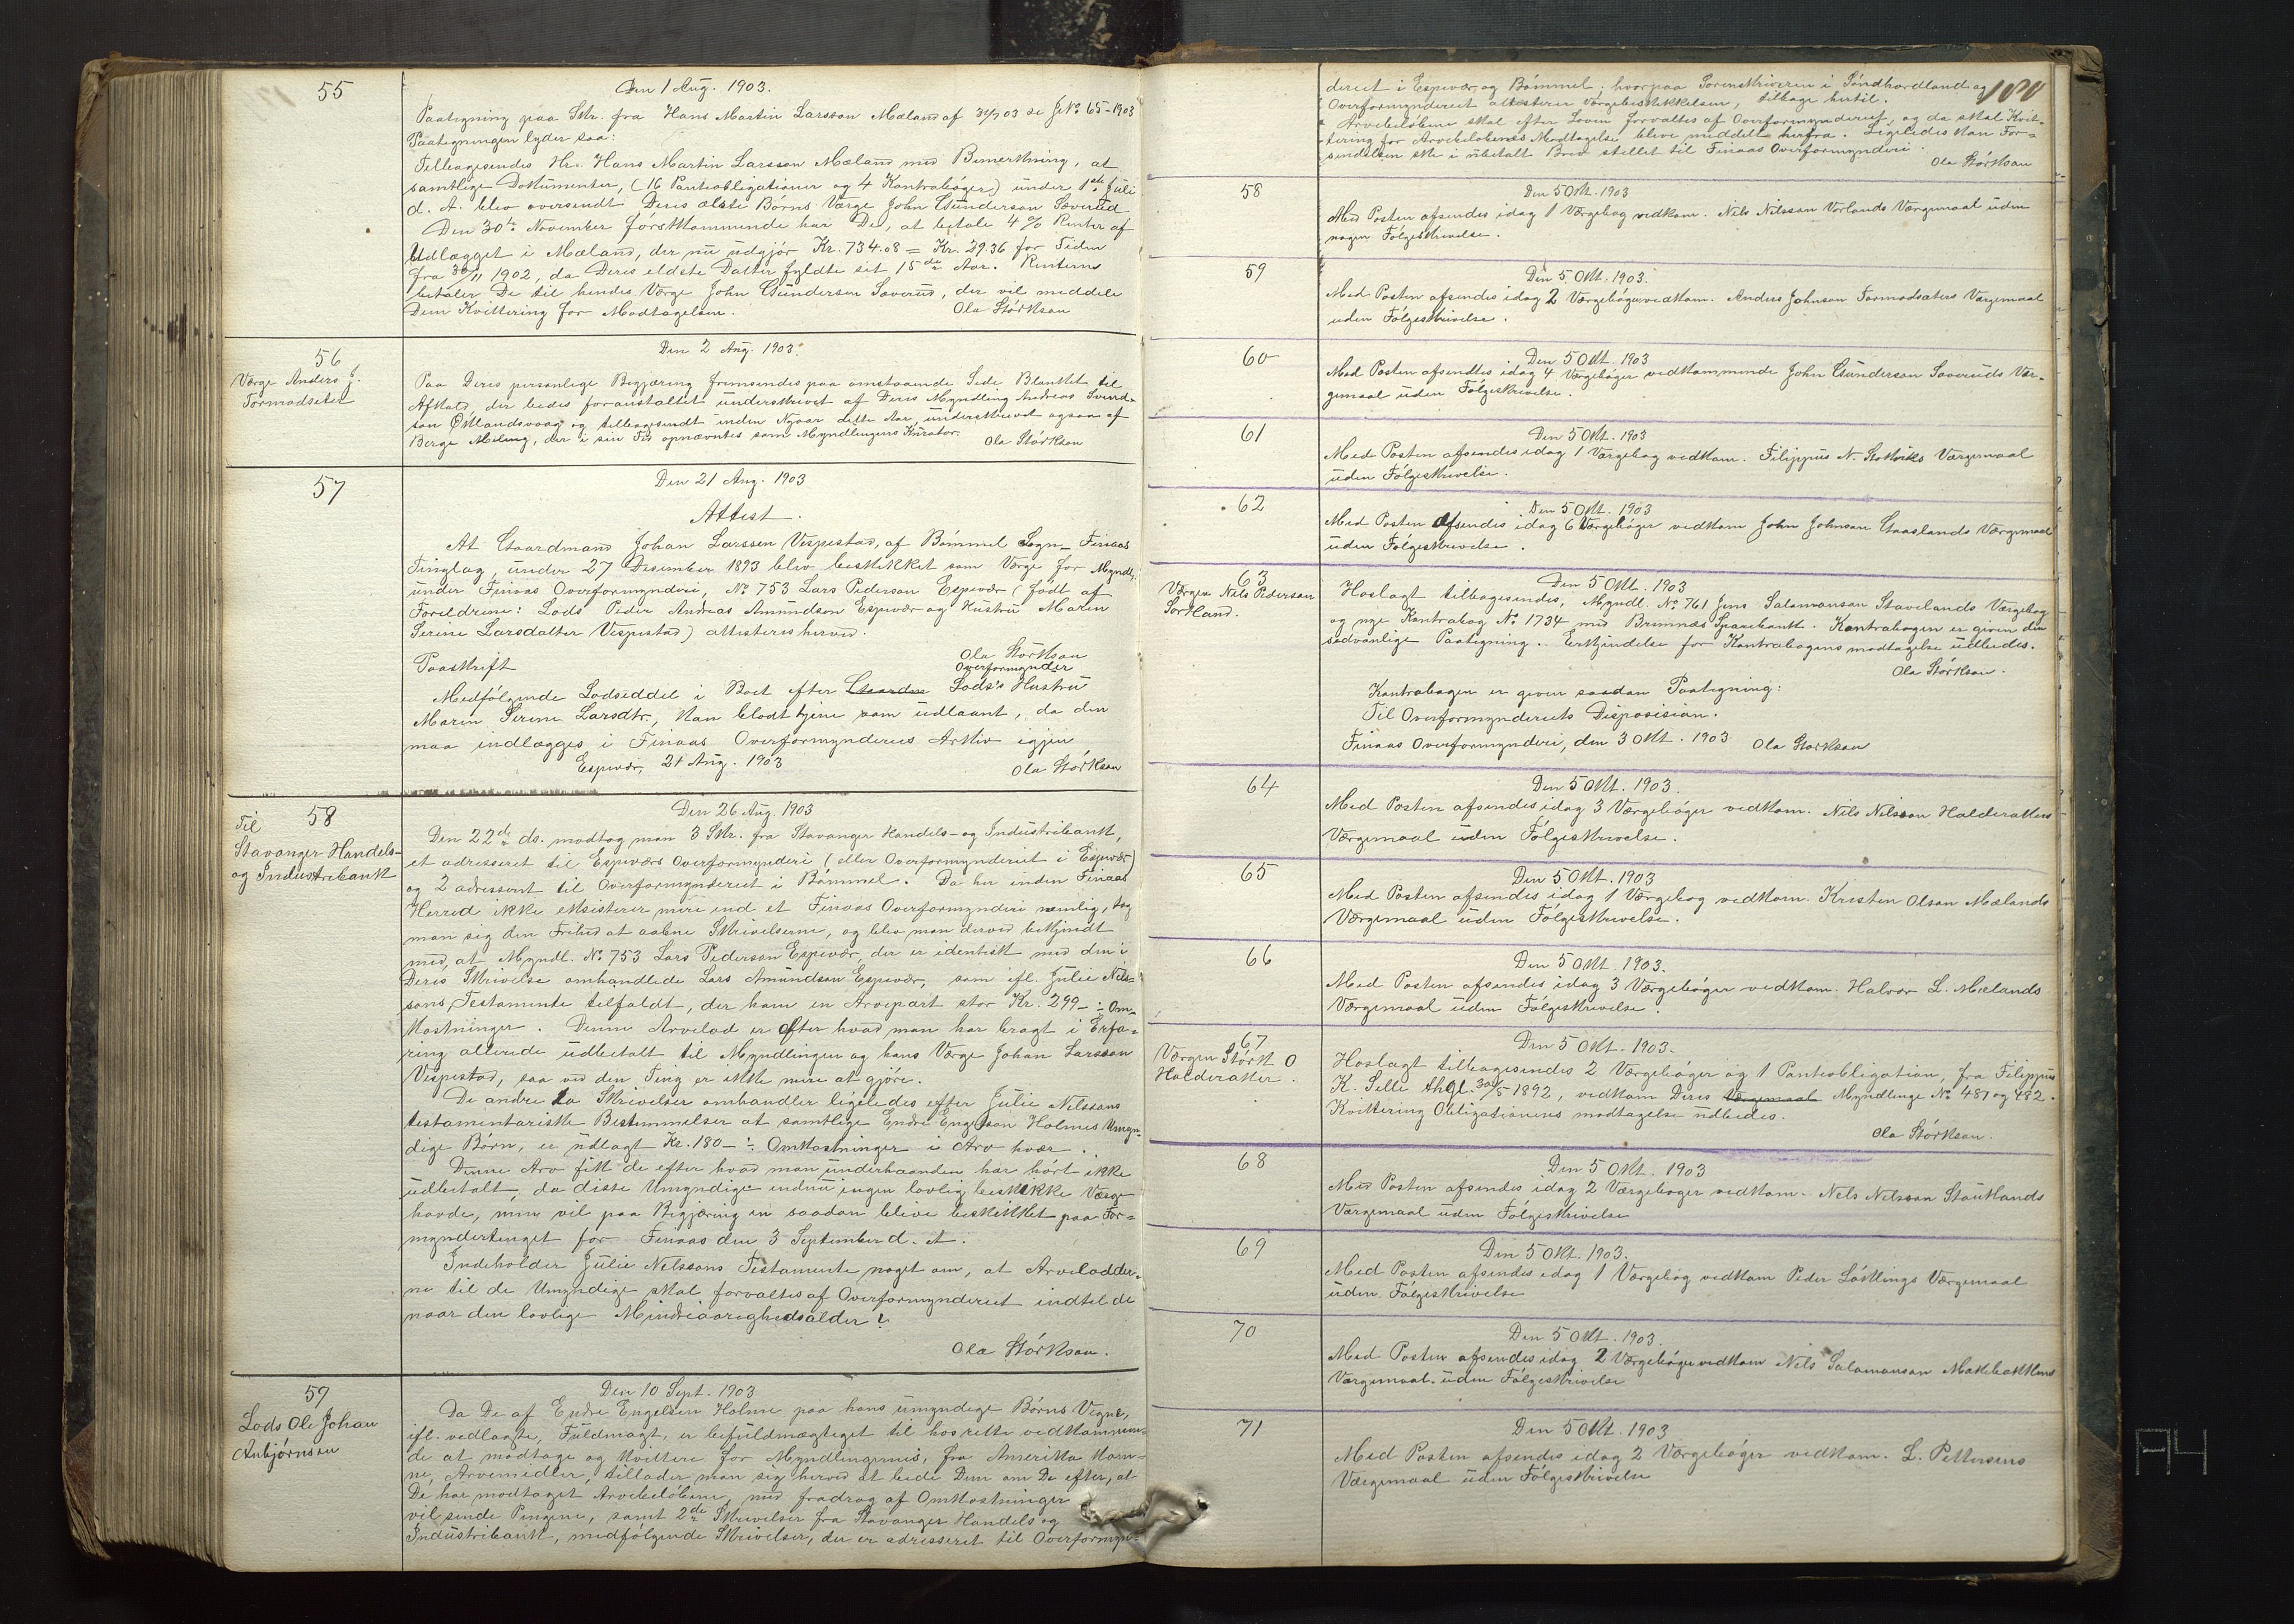 55
Den 1 Aug. 1903.
Paategning paa Skr. fra Hans Martin Larsson Mæland af 31/7 03 se J. No 65-1903
Paategningen lyder saa:
Tilbagesendes Hr. Hans Martin Larsson Mæland med Bemerkning, at
samtlige Dokumenter, (16 Panteobligationer og 4 Kontrabøger) under 1ste Juli
d. A. blev oversendt Deres ælste Børns Værge John Gunderson Søverud
Den 30te November førstkommende har De, at betale 4 % Renter af
Udlægget i Mæland, der nu udgjør Kr. 734.08 = Kr. 29.36 for Tiden
fra 30/11 1902, da Deres eldste Datter fyldte sit 15de Aar. Renterne
betaler De til hendes Værge John Gunderson Søverud, der vil meddele
Dem Kvittering for Modtagelsen.
Ola Størkson
56
Værge Anders J.
Tormodseter
Den 2 Aug. 1903.
Paa Deres personlige Begjæring fremsendes paa omstaaende Side Blanket til
Afkald, der bedes foranstaltet underskrevet af Deres Myndling Andreas Svend-
son Østlandsvaag og tilbagesendt inden Nyaar dette Aar, underskrevet ogsaa af
Berge Meling, der i sin Tid opnævntes som Myndlingens Kurator.
Ola Størkson
57
Den 21 Aug. 1903
Attest.
At Gaardmand Johan Larssen Vespestad, af Bømmel Sogn - Finaas
Tinglag, under 27 Desember 1893 blev beskikket som Værge for Myndl.
under Finaas Overformynderi, No 753 Lars Pederson Espevær (født af
Foreldrene: Lods Peder Andreas Amundson Espevær og Hustru Maren
Serine Larsdatter Vespestad) attesteres herved.
Ola Størkson
Overformynder
Paaskrift
Medfølgende Lodseddel i Boet efter Gaardm Lods's Hustru
Maren Serine Larsdtr., kan blodt tjene som udlaant, da den
maa indlægges i Finaas Overformynderies Arkiv igjen
Espevær, 21 Aug. 1903
Ola Størkson
58
Til
Stavanger Handels-
og Industribank
Den 26 Aug. 1903
Den 22de ds. modtog man 3 Skr. fra Stavanger Handels- og Industribank,
et adresseret til Espeværs Overformynderi (eller Overformynderiet i Espevær)
og 2 adresseret til Overformynderiet i Bømmel. Da her inden Finaas
Herred ikke eksisterer mere end et Finaas Overformynderi nemlig, tog
man sig den Frihed at aabne Skrivelserne, og blev man derved bekjendt
med, at Myndl. No 753 Lars Pederson Espevær, der er identisk med den i
Deres Skrivelse omhandlede Lars Amundson Espevær, som ifl. Julie Nels-
sons Testamente tilfaldt, der ham en Arvepart stor Kr. 299 - ÷ Om-
kostninger. Denne Arvelod er efter hvad man har bragt i Erfa-
ring allerede udbetalt til Myndlingen og hans Værge Johan Larsson
Vespestad, saa ved den Ting er ikke mere at gjøre.
De andre to Skrivelser omhandler ligeledes efter Julie Nelssons
testamentariske Bestemmelser at samtlige Endre Engelson Holmes Umyn-
dige Børn, er udlagt Kr. 180 - ÷ Omkostninger i Arv hver.
Denne Arv fik de efter hvad man underhaanden har hørt ikke
udbetalt, da disse Umyndige endnu ingen lovlig beskikke Værge
havde, men vil paa Begjæring en saadan bleve beskikket paa For-
myndertinget for Finaas den 3 September d. A.
Indeholder Julie Nelssons Testamente noget om, at Arvelodder-
ne til de Umyndige skal forvaltes af Overformynderiet indtil de
naar den lovlige Mindreaarighedsalder?
Ola Størkson.
59
Lods Ole Johan
Anbjørnson
Den 10 Sept. 1903
Da De af Endre Engelsen Holme paa hans umyndige Børns Vegne,
ifl. vedlagte, Fuldmagt, er befuldmægtiget til hos rette vedkommen-
de at modtage og kvittere for Myndlingernes, fra Amerika kom-
ne, Arvemidler, tillader man sig herved at bede Dem om De efter, at
De har modtaget Arvebeløbene, med fradrag af Omkostninger
vil sende Pengene, samt 2de Skrivelser fra Stavanger Handels og
Industribank, medfølgende Skrivelser, der er adresseret til Overformyn-
180
deriet i Espevær og Bømmel; hvorpaa Sorenskriveren i Søndhordland og
Overformynderiet attesterer Værgebeskikkelsen, tilbage hertil.
Arvebeløbene skal efter Loven forvaltes af Overformynderiet, og da skal Kvit-
tering for Arvebeløbenes Modtagelse bleve meddelt herfra. Ligeledes kan For-
sendelsen ske i ubetalt Brev stillet til Finaas Overformynderi.
Ola Størkson
58
Den 5 Okt. 1903
Med Posten afsendes idag 1 Værgebog vedkom. Nils Nilsson Vorlands Værgemaal uden
nogen Følgeskrivelse.
59
Den 5 Okt. 1903.
Med Posten afsendes idag 2 Værgebøger vedkom. Anders Johnson Tormodsæters Værgemaal
uden Følgeskrivelse.
60
Den 5 Okt. 1903
Med Posten afsendtes idag 4 Værgebøger vedkommende John Gunderson Søveruds Vær-
gemaal uden Følgeskrivelse.
61
Den 5 Okt. 1903
Med Posten afsendes idag 1 Værgebog vedkom. Filippus N. Stokviks Værgemaal
uden Følgeskrivelse.
62
Den 5 Okt. 1903
Med Posten afsendes idag 6 Værgebøger vedkom John Johnson Gaaslands Værgemaal
uden Følgeskrivelse.
63
Værgen Nels Pederson
Sortland.
Den 5 Okt. 1903
Hoslagt tilbagesendes, Myndl. No 761 Jens Salamonson Stavelands Værgebog
og nye Kontrabog No 1734 med Bremnes Sparebank. Kontrabogen er given den
sædvanlige Paategning. Erkjendelse for Kontrabogens modtagelse udbedes.
Ola Størkson.
Kontrabogen er given saadan Paategning:
Til Overformynderiets Disposision.
Finaas Overformynderi, den 3 Okt. 1903 Ola Størkson
64
Den 5 Okt. 1903.
Med Posten afsendes idag 3 Værgebøger vedkom. Nils Nilsson Halderakers
Værgemaal uden Følgeskrivelse.
65
Den 5 Okt. 1903
Med Posten afsendes idag 1 Værgebog vedkom. Kristen Olson Mælands
Værgemaal uden Følgeskrivelse.
66
Den 5 Okt. 1903.
Med Posten afsendes idag 3 Værgebøger vedkom. Halvor L. Mælands
Værgemaal uden Følgeskrivelse.
67
Værgen Størk O
Halderaker.
Den 5 Okt. 1903.
Hoslagt tilbagesendes 2 Værgebøger og 1 Panteobligation, fra Filippus
K. Selle thgl. 30/5 1892, vedkom Deres Værgemaal Myndlinge No 481 og 482.
Kvittering Obligationens modtagelse udbedes.
Ola Størkson.
68
Den 5 Okt. 1903
Med Posten afsendes idag 2 Værgebøger vedkom. Nels Nelsson Stautlands
Værgemaal uden Følgeskrivelse
69
Den 5 Okt. 1903.
Med Posten afsendes idag 1 Værgebog vedkom Peder Løklings Værgemaal
uden Følgeskrivelse
70
Den 5 Okt. 1903.
Med Posten afsendes idag 2 Værgebøger vedkom Nels Salamonson
Værgemaal uden Følgeskrivelse
71
Den 5 Okt. 1903
Med Posten afsendes idag 2 Værgebøger vedkom. L. Pettersens
Værgemaal uden Følgeskrivelse
A4